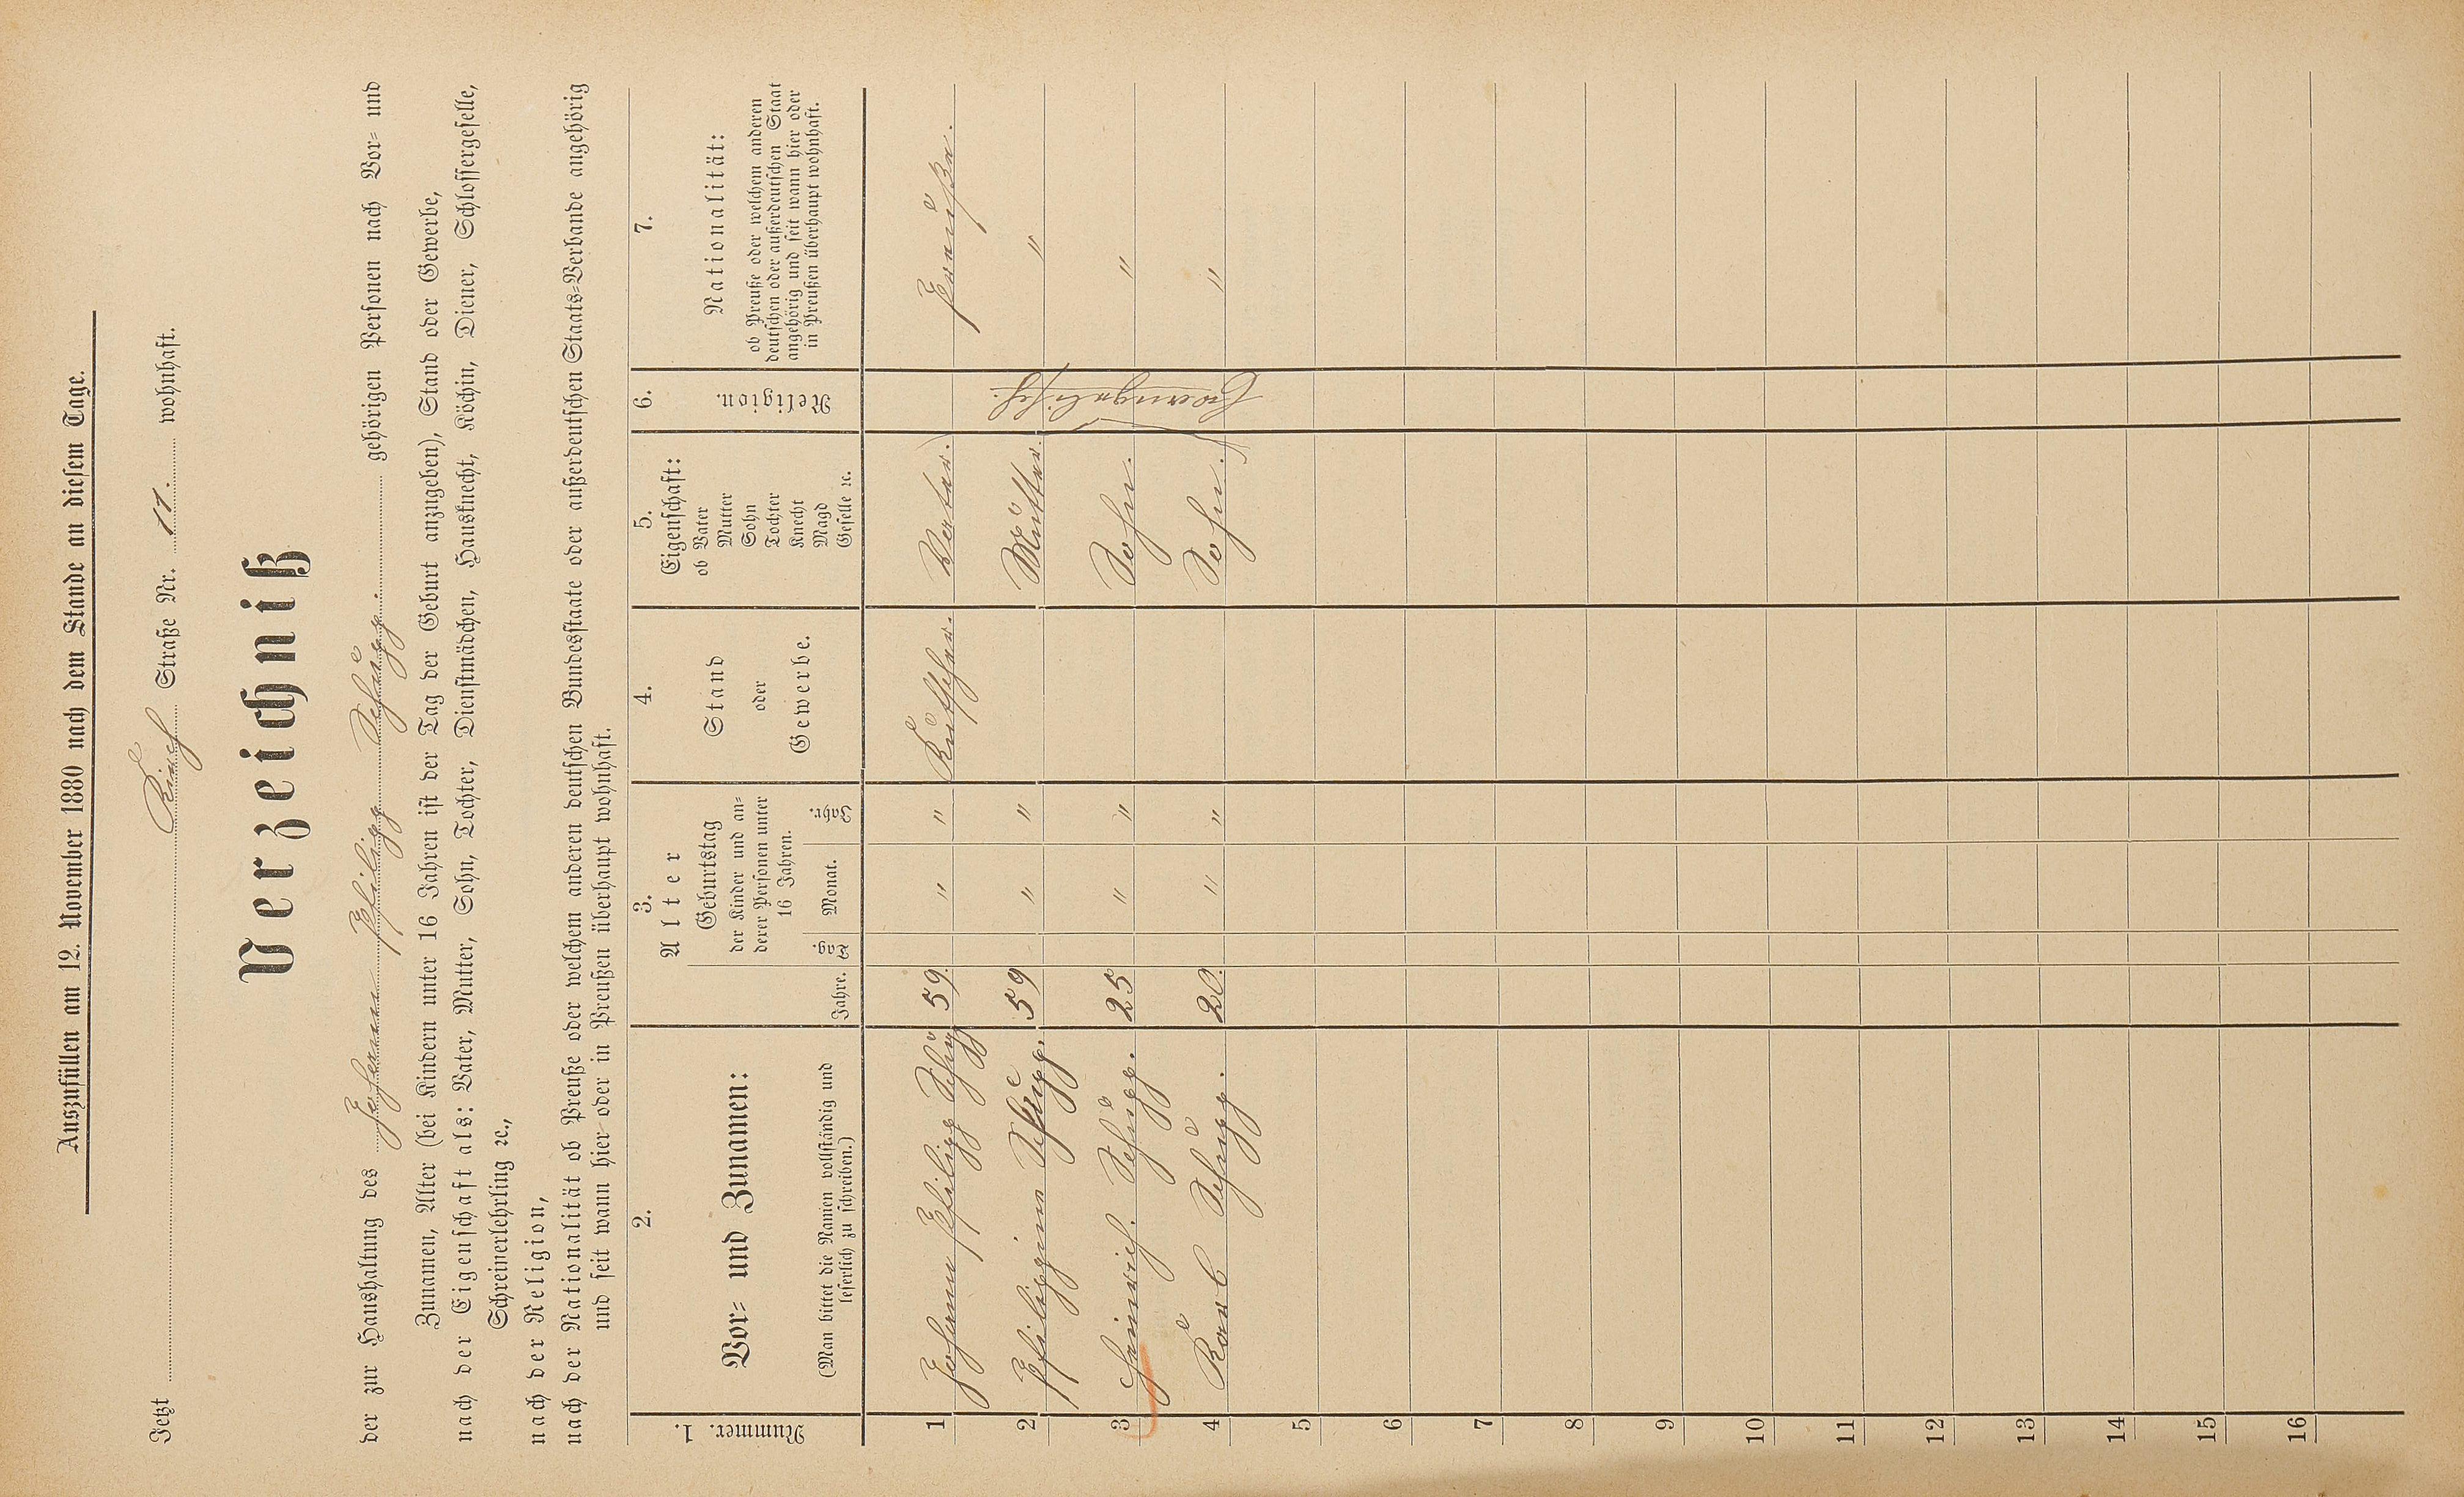 Auszufüllen am 12. November 1880 nach dem Stande an diesem Tage.
Jetzt Straße Nr. 11. wohnhaft.
Verzeichniß
der zur Haushaltung des Johann Philipp Schupp. gehörigen Personen nach Vor- und
Zunamen, Alter (bei Kindern unter 16 Jahren ist der Tag der Geburt anzugeben), Stand oder Gewerbe,
nach der Eigenschaft als: Vater, Mutter, Sohn, Tochter, Dienstmädchen, Hausknecht, Köchin, Diener, Schlossergeselle,
Schreinerlehrling ꝛc.,
nach der Religion,
nach der Nationalität ob Preuße oder welchem anderen deutschen Bundesstaate oder außerdeutschen Staats-Verbande angehörig
und seit wann hier oder in Preußen überhaupt wohnhaft.
Nummer. 1.
2.
Vor- und Zunamen:
(Man bittet die Namen vollständig und
leserlich zu schreiben.)
3.
Alter
Jahre.
Geburtstag
der Kinder und an-
derer Personen unter
16 Jahren.
Tag. Monat. Jahr.
4.
Stand
oder
Gewerbe.
5.
Eigenschaft:
ob Vater
Mutter
Sohn
Tochter
Knecht
Magd
Geselle ꝛc.
6.
Religion.
7.
Nationalität:
ob Preuße oder welchem anderen
deutschen oder außerdeutschen Staat
angehörig und seit wann hier oder
in Preußen überhaupt wohnhaft.
1 Johann Philipp Schupp 59. " " Kutscher. Vater. Preuße.
2 Philippine Schupp. 59 " " Mutter. "
3 Heinrich. Schupp. 25 " " Sohn. "
4 Karl Schupp. 20. " " Sohn. "
Evangelisch.
5
6
7
8
9
10
11
12
13
14
15
16